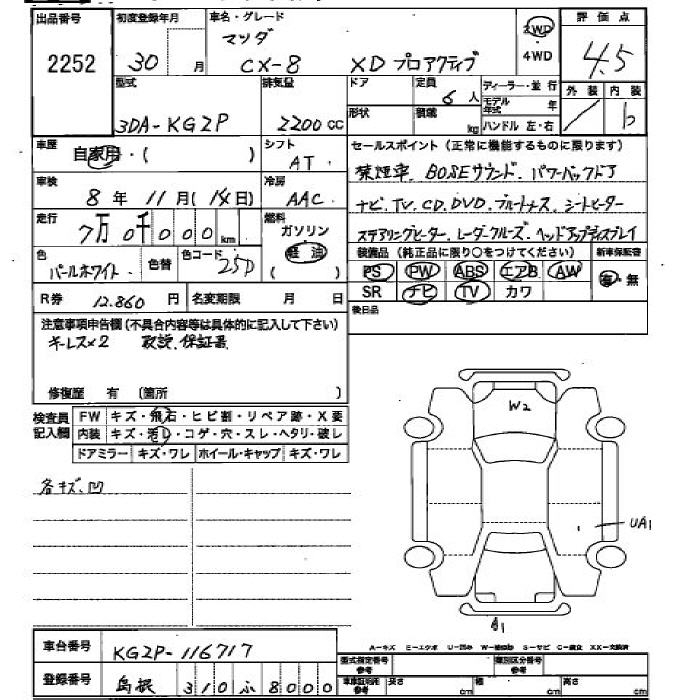 出品番号 初度登録年月 車名・グレード 2WD 4WD 評価点
2252 30 月 マツダ CX-8 XD プロアクティブ 4.5
型式 排気量 ドア 定員 ディーラー・並行 外装 内装
3DA-KG2P 2200 CC 6 人 モデル年式 年 b
形状 積載 kg ハンドル 左・右
車歴 自家用・( ) シフト AT セールスポイント (正常に機能するものに限ります)
禁煙車、BOSEサウンド、パワーバックドア
車検 8 年 11 月 (14日) 冷房 AAC
ナビ、TV、CD、DVD、ブルートゥース、シートヒーター
走行 7万 0千 000 km 燃料 ガソリン 軽油 ( )
ステアリングヒーター、レーダークルーズ、ヘッドアップディスプレイ
色 パールホワイト 色替 色コード 25D
装備品 (純正品に限り○をつけてください) 新車保証書
PS PW ABS エアB AW 有・無
SR ナビ TV カワ
R券 12.860 円 名変期限 月 日 後日品
注意事項申告欄 (不具合内容等は具体的に記入して下さい)
キーレス×2 取説、保証書
修復歴 有 (箇所 )
検査員記入欄 FW キズ・飛石・ヒビ割・リペア跡・X要
内装 キズ・汚レ・コゲ・穴・スレ・ヘタリ・破レ
ドアミラー キズ・ワレ ホイール・キャップ キズ・ワレ
各キズ、凹
W2
UA1
A1
A-キズ E-エクボ U-凹み S-サビ
車台番号 KG2P-116717
型式指定番号 参考 類別区分番号 参考
登録番号 島根 310 ふ 8000
参考 長さ cm 幅 cm 高さ cm